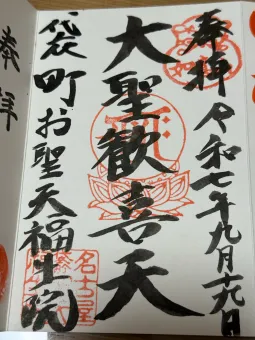 奉拝
令和七年九月
大聖歓喜天
袋町お聖天福生院
名古屋
奉拝